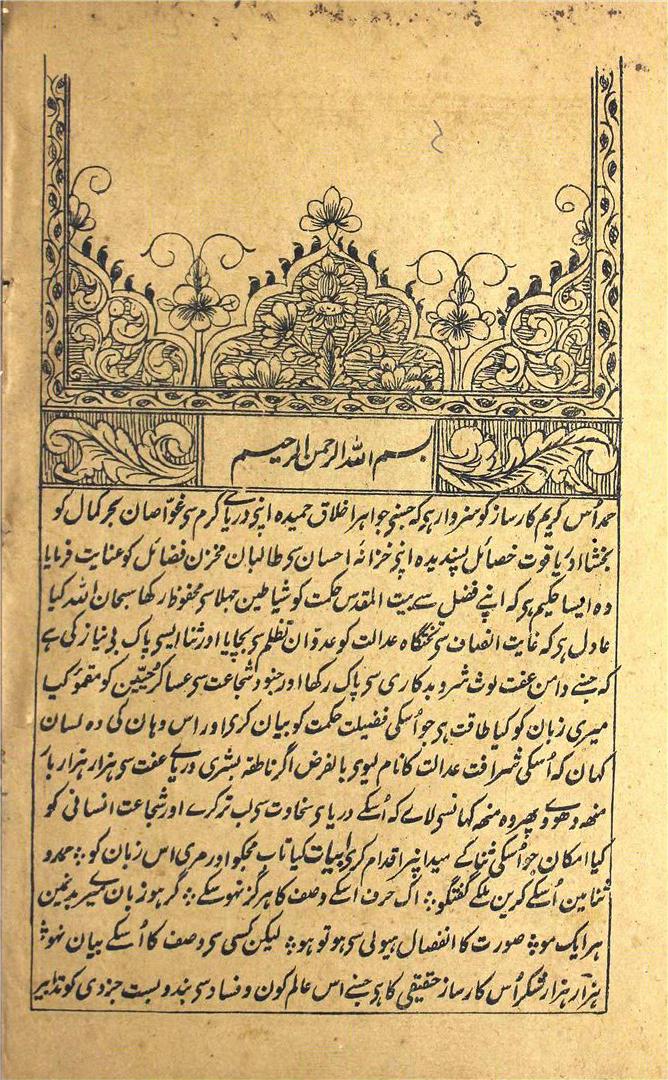 بسم اللہ الرحمن الرحیم
حمد اُس کریم کارساز کو سزوار ہی کہ جسنی جواہر اخلاق حمیدہ اپنی دریای کرم سی غوّاصان بحر کمال کو
بخشا اور یاقوت خصائل پسندیدہ اپنی خزانۂ احسان سی طالبان مخزن فضائل کو عنایت فرمایا
وہ ایسا حکیم ہی کہ اپنے فضل سے بیت المقدس حکمت کو شیاطین جہلا سی محفوظ رکھا سبحان اللہ کیا
عادل ہی کہ غایت انصاف سی تختگاہ عدالت کو عدوان تظلم سی بچایا اور ثنا ایسی پاک بی نیاز کی ہے
کہ جسنے دامن عفت لوث شر و بدکاری سی پاک رکھا اور جنود شجاعت سی عساکر کو مقہور کیا
میری زبان کو کیا طاقت ہی جو اُسکی فضیلت حکمت کو بیان کری اور اس دہان کی وہ لسان
کہان کہ اُسکی شرافت عدالت کا نام لیوی بالفرض اگر ناطقہ بشری دریای عفت سی ہزار ہزار بار
منھ دھووے پھر وہ منھ کہانسی لاے کہ اُسکے دریای سخاوت سی لب تر کرے اور شجاعت انسانی کو
کیا امکان جو اُسکی ثنا کے میدانپر اقدام کری ابیات کیا تاب مجکو اور مری اس زبان کو ؞ حمد و
ثنا مین اُسکے کرین ملکے گفتگو ؞ اک حرف اسکے وصف کا ہرگز نہو سکے ؞ گر ہو زبان میرے بدنمین
ہر ایک مو ؞ صورت کا انفصال ہیولی سی ہو تو ہو ؞ لیکن کسی سی وصف کا اُسکے بیان نہو ؞
ہزار ہزار شکر اُس کارساز حقیقی کا ہی جسنے اس عالم کون و فساد سی بند و بست جزدی کو تدابیر